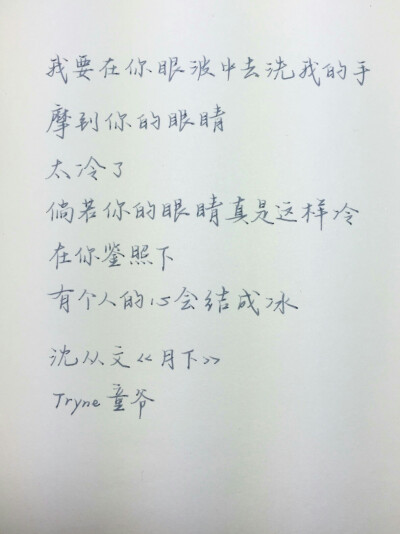 我要在你眼波中去洗我的手
摩到你的眼睛
太冷了
倘若你的眼睛真是这样冷
在你鉴照下
有个人的心会结成冰
沈从文《月下》
Tryne 童爷